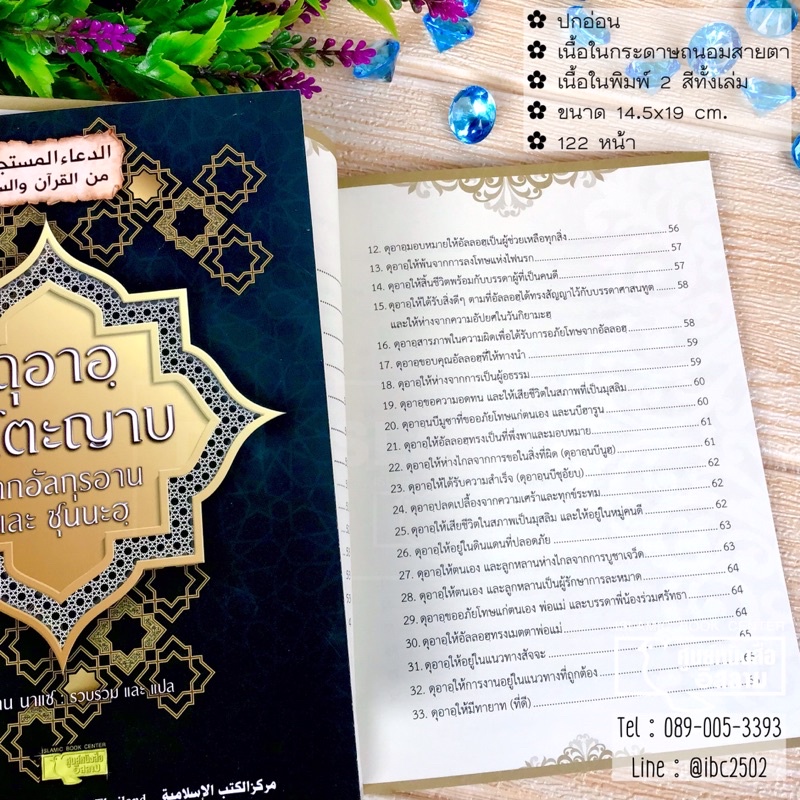 ✿ ปกอ่อน
✿ เนื้อในกระดาษถนอมสายตา
✿ เนื้อในพิมพ์ 2 สีทั้งเล่ม
✿ ขนาด 14.5x19 cm.
✿ 122 หน้า
الدعاء المستج
من القرآن والس
ดุอาอฺ
โตะญาบ
ากอัลกุรอาน
และ ซุนนะฮฺ
าน นาแซ : รวบรวม และ แปล
ISLAMIC BOOK CENTER
ศูนย์หนังสือ
อิสลาม
مركز الكتب الإسلامية
Thailand
12. ดุอาอฺมอบหมายให้อัลลอฮฺเป็นผู้ช่วยเหลือทุกสิ่ง 56
13. ดุอาอฺให้พ้นจากการลงโทษแห่งไฟนรก 57
14. ดุอาอฺให้สิ้นชีวิตพร้อมกับบรรดาผู้ที่เป็นคนดี 57
15. ดุอาอฺให้ได้รับสิ่งดีๆ ตามที่อัลลอฮฺได้ทรงสัญญาไว้กับบรรดาศาสนทูต 58
และให้ห่างจากความอัปยศในวันกิยามะฮฺ
16. ดุอาอฺสารภาพในความผิดเพื่อได้รับการอภัยโทษจากอัลลอฮฺ 58
17. ดุอาอฺขอบคุณอัลลอฮฺที่ให้ทางนำ 59
18. ดุอาอฺให้ห่างจากการเป็นผู้อธรรม 59
19. ดุอาอฺขอความอดทน และให้เสียชีวิตในสภาพที่เป็นมุสลิม 60
20. ดุอาอฺนบีมูซาที่ขออภัยโทษแก่ตนเอง และนบีฮารูน 60
21. ดุอาอฺให้อัลลอฮฺทรงเป็นที่พึ่งพาและมอบหมาย 61
22. ดุอาอฺให้ห่างไกลจากการขอในสิ่งที่ผิด (ดุอาอฺนบีนูฮฺ) 61
23. ดุอาอฺให้ได้รับความสำเร็จ (ดุอาอฺนบีชุอัยบ) 62
24. ดุอาอฺปลดเปลื้องจากความเศร้าและทุกข์ระทม 62
25. ดุอาอฺให้เสียชีวิตในสภาพเป็นมุสลิม และให้อยู่ในหมู่คนดี 62
26. ดุอาอฺให้อยู่ในดินแดนที่ปลอดภัย 62
27. ดุอาอฺให้ตนเอง และลูกหลานห่างไกลจากการบูชาเจว็ด 63
28. ดุอาอฺให้ตนเอง และลูกหลานเป็นผู้รักษาการละหมาด 63
29. ดุอาอฺขออภัยโทษแก่ตนเอง พ่อแม่ และบรรดาพี่น้องร่วมศรัทธา 64
30. ดุอาอฺให้อัลลอฮฺทรงเมตตาพ่อแม่ 64
31. ดุอาอฺให้อยู่ในแนวทางสัจจะ 65
32. ดุอาอฺให้การงานอยู่ในแนวทางที่ถูกต้อง
33. ดุอาอฺให้มีทายาท (ที่ดี)
ศูนย์หนังสือ
อิสลาม
Tel : 089-005-3393
Line : @ibc2502